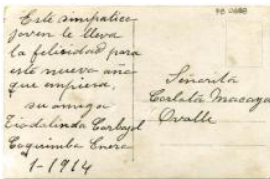 Este simpatico
joven le lleva
la felicidad para
este nuevo año
que empiesa,
su amiga
Tiodalinda Carbajal
Coquimbo Enero
1-1914
PB 0688
Señorita
Carlota Macaya
Ovalle